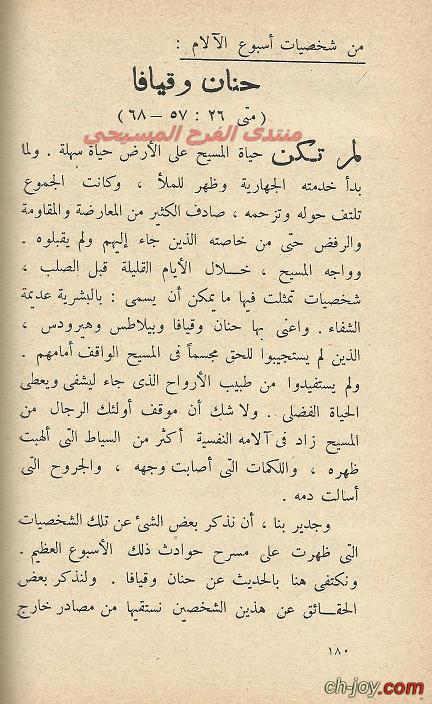 من شخصيات أسبوع الآلام :
حنان وقيافا
( متى ٢٦ : ٥٧ – ٦٨ )
منتدى الفرح المسيحى
لم تكن حياة المسيح على الأرض حياة سهلة . ولما
بدأ خدمته الجهارية وظهر للملأ ، وكانت الجموع
تلتف حوله وتزحمه ، صادف الكثير من المعارضة والمقاومة
والرفض حتى من خاصته الذين جاء إليهم ولم يقبلوه .
وواجه المسيح ، خلال الأيام القليلة قبل الصلب ،
شخصيات تمثلت فيها ما يمكن أن يسمى : بالبشرية عديمة
الشفاء . واعنى بها حنان وقيافا وبيلاطس وهيرودس ،
الذين لم يستجيبوا للحق مجسماً فى المسيح الواقف أمامهم .
ولم يستفيدوا من طبيب الأرواح الذى جاء ليشفى ويعطى
الحياة الفضلى . . ولا شك أن موقف أولئك الرجال من
المسيح زاد فى آلامه النفسية أكثر من السياط التى ألهبت
ظهره ، واللكمات التى أصابت وجهه ، والجروح التى
أسالت دمه .
وجدير بنا ، أن نذكر بعض الشئ عن تلك الشخصيات
التى ظهرت على مسرح حوادث ذلك الأسبوع العظيم .
ونكتفى هنا بالحديث عن حنان وقيافا . ولنذكر بعض
الحقائق عن هذين الشخصين نستقيها من مصادر خارج
١٨٠
ch-joy.com